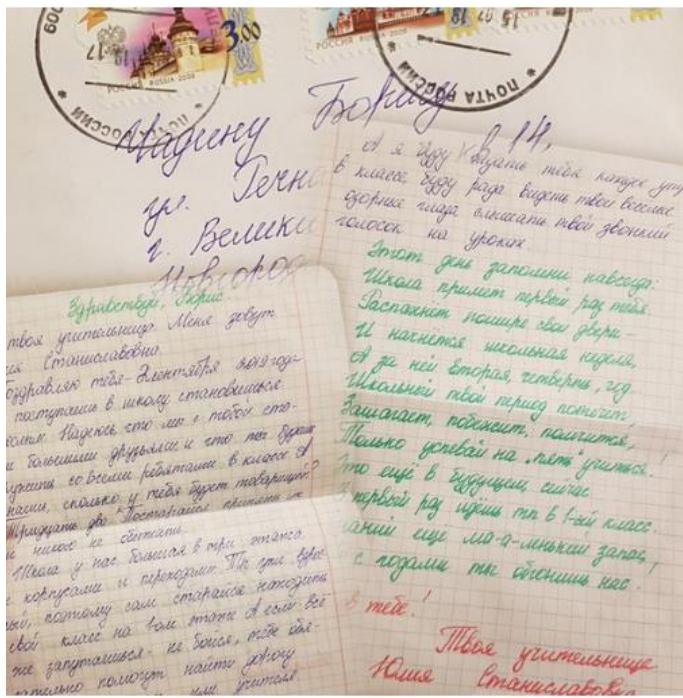 600
3.00
РОССИЯ RUSSIA · 2009
ПОЧТА РОССИИ
РОССИЯ
15 07 18
ПОЧТА РОССИИ
Борису
ул. Речна
14,
г. Велики
Новгород
Здравствуй, Борис.
твоя учительница. Меня зовут
ия Станиславовна.
оздравляю тебя - 2 сентября 2019 года
поступаешь в школу становишься
Надеюсь что мы с тобой ста-
большими друзьями и что ты будешь
ужить со всеми ребятами в классе. А
сколько у тебя будет товарищей?
Тридцать два. Постарайся
никого не обижать.
Школа у нас большая в три этажа
с корпусами и переходами. Ты уже взрос
ый, поэтому сам старайся находить
свой класс на 1ом этаже. А если всё
же запутаешься - не бойся, тебе обя-
зательно помогут найти дорогу
или учителя
А я буду тебя каждое ут
в классе, буду рада видеть твои веселые
озорные глаза слышать твой звонкий
голосок на уроках
Этот день запомни навсегда:
Школа примет первый раз тебя.
Распахнет пошире свои двери -
И начнётся школьная неделя,
А за ней вторая, четверть, год.
Школьный твой период потечет,
Зашагает, побежит, помчится, !
Только успевай на "пять" учиться.
Это ещё в будущем, сейчас
первый раз идёшь ты в 1-ый класс.
наний ещё ма-а-ленький запас, !
с годами ты обгонишь нас.
в тебе!
Твоя учительница
Юлия Станиславовн